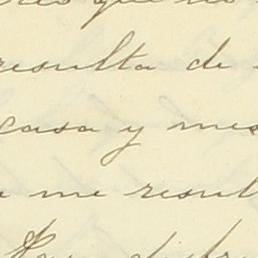 que no
resulta de
casa y mes
me result